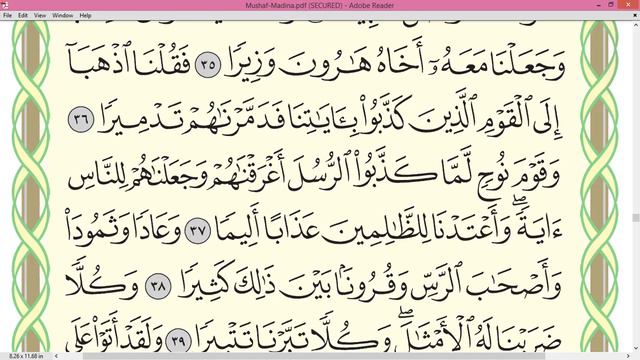 Mushaf-Madina.pdf (SECURED) - Adobe Reader
File Edit View Window Help
وَجَعَلْنَا مَعَهُۥٓ أَخَاهُ هَـٰرُونَ وَزِيرًا ٣٥ فَقُلْنَا ٱذْهَبَآ
إِلَى ٱلْقَوْمِ ٱلَّذِينَ كَذَّبُوا۟ بِـَٔايَـٰتِنَا فَدَمَّرْنَـٰهُمْ تَدْمِيرًا ٣٦
وَقَوْمَ نُوحٍ لَّمَّا كَذَّبُوا۟ ٱلرُّسُلَ أَغْرَقْنَـٰهُمْ وَجَعَلْنَـٰهُمْ لِلنَّاسِ
ءَايَةً ۖ وَأَعْتَدْنَا لِلظَّـٰلِمِينَ عَذَابًا أَلِيمًا ٣٧ وَعَادًا وَثَمُودَا۟
وَأَصْحَـٰبَ ٱلرَّسِّ وَقُرُونًۢا بَيْنَ ذَٰلِكَ كَثِيرًا ٣٨ وَكُلًّا
ضَرَبْنَا لَهُ ٱلْأَمْثَـٰلَ ۖ وَكُلًّا تَبَّرْنَا تَتْبِيرًا ٣٩ وَلَقَدْ أَتَوْا۟ عَلَى
8.26 x 11.68 in